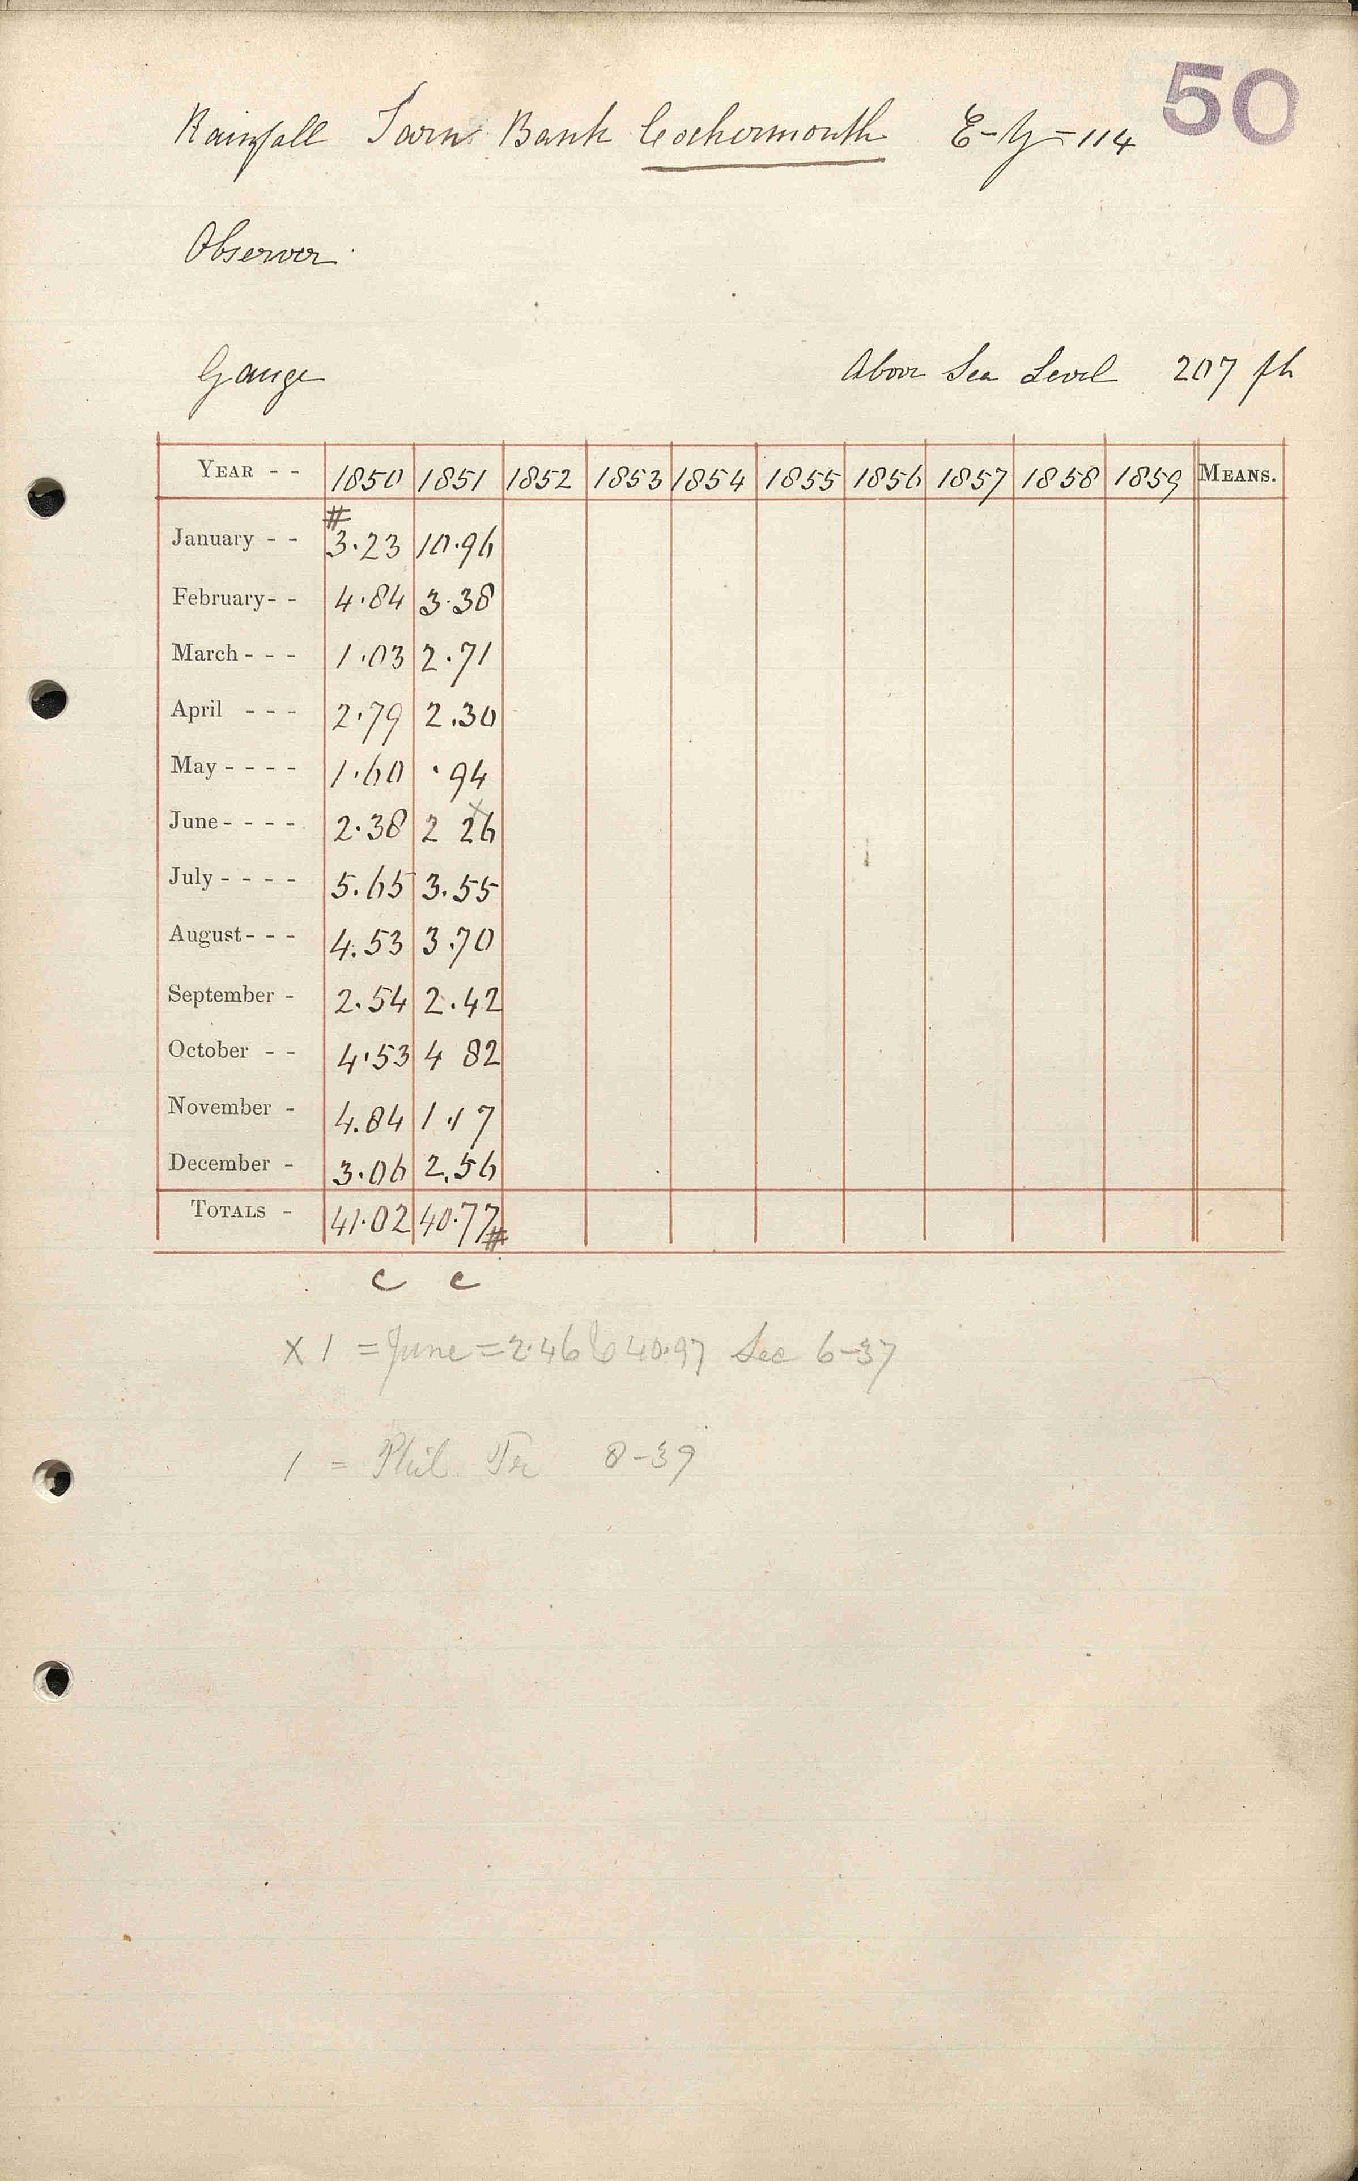 50
Rainfall Tarn Bank Cockermouth E-y-114
Observer.
Gauge Above Sea Level 207 ft
YEAR - - 1850 1851 1852 1853 1854 1855 1856 1857 1858 1859 MEANS.
#
January - - 3.23 10.96
February - - 4.84 3.38
March - - - 1.03 2.71
April - - - 2.79 2.30
May - - - - 1.60 .94
x
June - - - - 2.38 2 26
July - - - - 5.65 3.55
August - - - 4.53 3.70
September - 2.54 2.42
October - - 4.53 4 82
November - 4.84 1.17
December - 3.06 2.56
TOTALS - 41.02 40.77 #
c c
x 1 = June = 2.46 & 40.97 See 6-37
1 = Phil. Tr 8-39